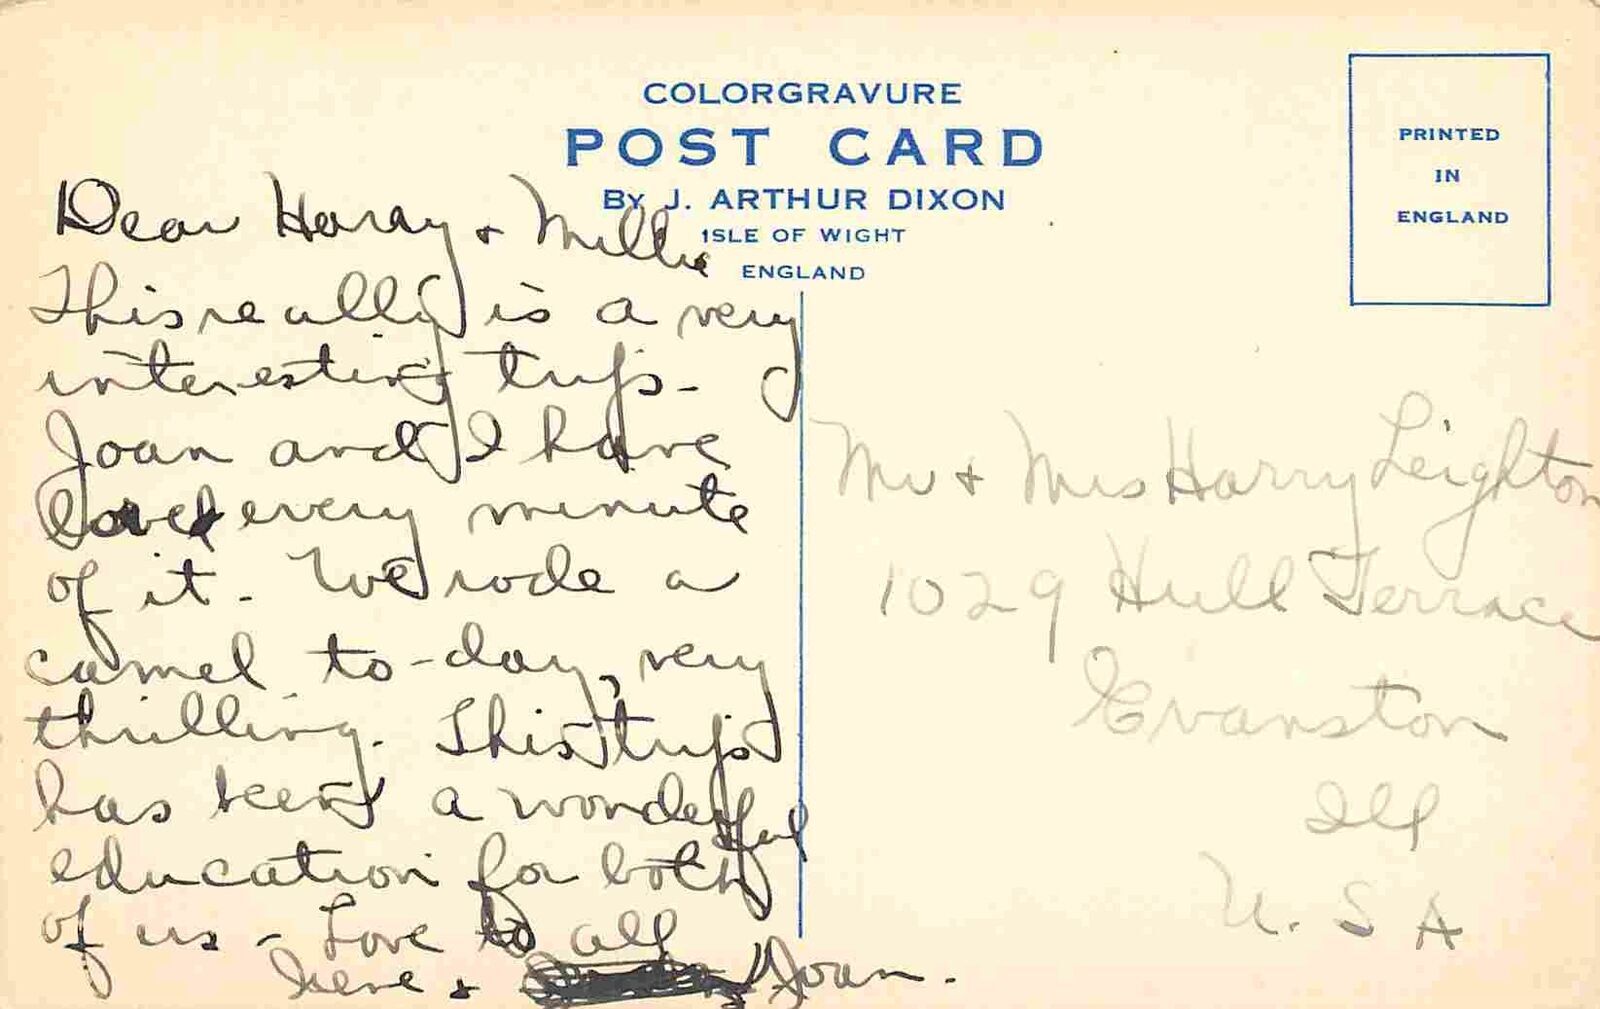 COLORGRAVURE
POST CARD
By J. ARTHUR DIXON
ISLE OF WIGHT
ENGLAND
PRINTED
IN
ENGLAND
Dear Harry + Millie
This really is a very
interesting trip -
Joan and I have
loved every minute
of it - We rode a
camel to-day, very
thrilling. This trip
has been a wonderful
education for both
of us - Love to all
Irene + Joan.
Mr + Mrs Harry Leighton
1029 Hull Terrace
Evanston
Ill
U. S A